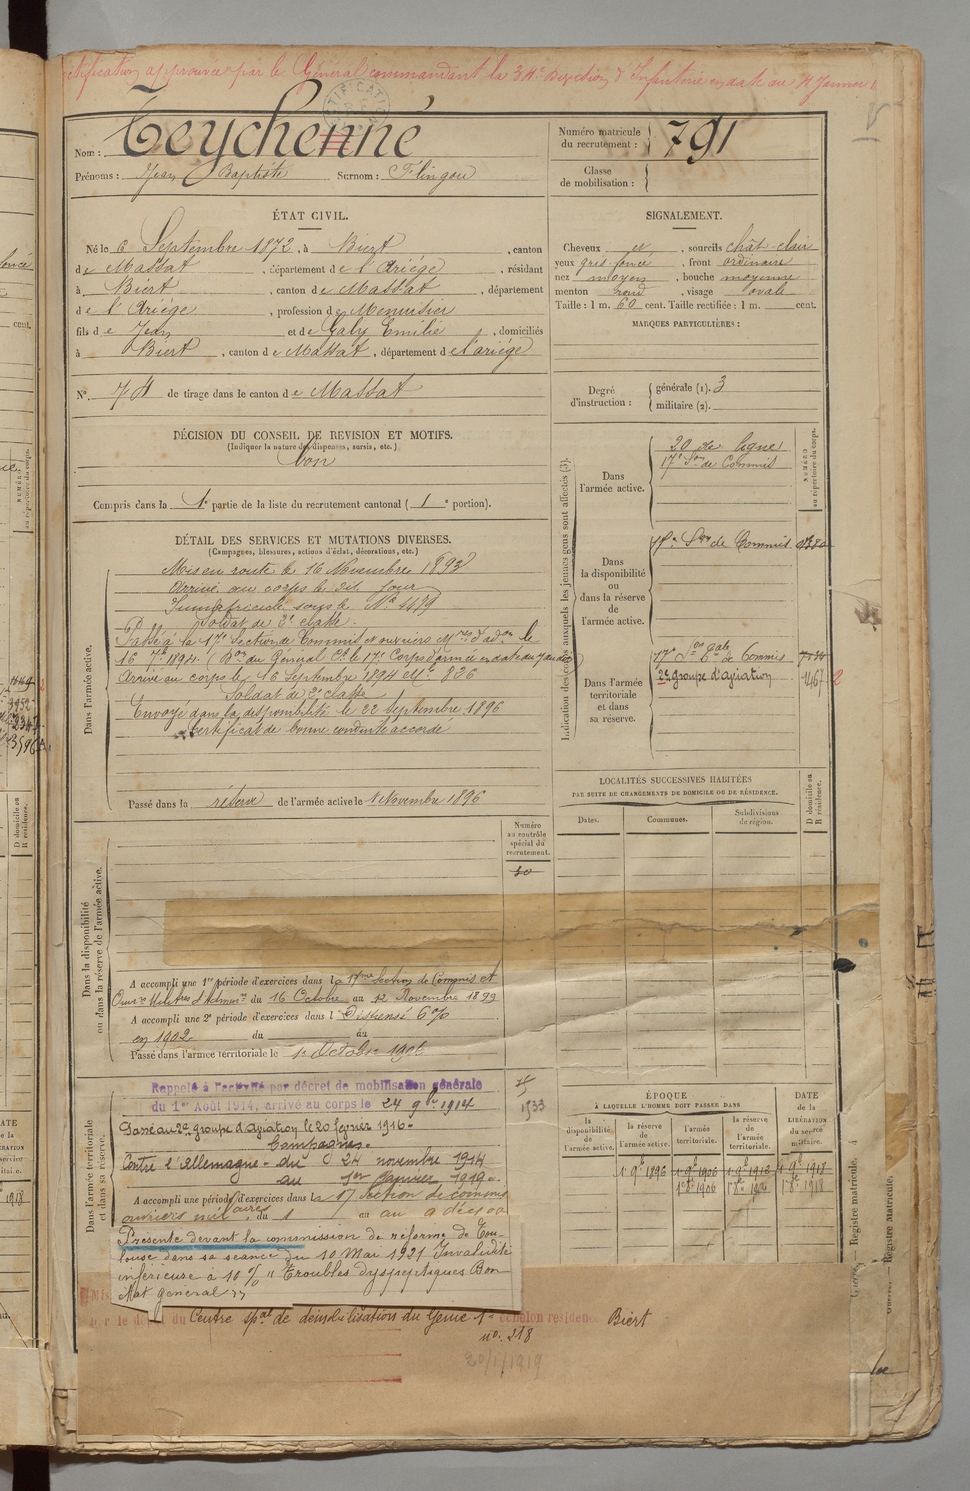 approuvée par le Général commandant la 34e Région d'Infanterie en date du 4 Janvier
Nom : Teychenné
Prénoms : Jean Baptiste Surnom : Flingou
Numéro matricule du recrutement : 791
Classe de mobilisation :
ÉTAT CIVIL.
Né le 6 Septembre 1872, à Biert, canton
de Massat, département de l'Ariége, résidant
à Biert, canton de Massat, département
de l'Ariége, profession de Menuisier
fils de Jean et de Galy Emilie, domiciliés
à Biert, canton de Massat, département de l'ariége
N° 74 de tirage dans le canton de Massat
SIGNALEMENT.
Cheveux et, sourcils chât-clair
yeux gris foncé, front ordinaire
nez moyen, bouche moyenne
menton rond, visage lovale
Taille : 1 m. 60 cent. Taille rectifiée : 1 m. cent.
MARQUES PARTICULIÈRES :
Degré d'instruction : générale (1). 3
militaire (2).
DÉCISION DU CONSEIL DE REVISION ET MOTIFS.
(Indiquer la nature des dispenses, sursis, etc.)
bon
Compris dans la 1e partie de la liste du recrutement cantonal (1e portion).
DÉTAIL DES SERVICES ET MUTATIONS DIVERSES.
(Campagnes, blessures, actions d'éclat, décorations, etc.)
Dans l'armée active.
Mis en route le 16 Novembre 1893
Arrivé au corps le dit jour
Immatriculé sous le No 4479
Soldat de 2e classe.
Passé à la 17e Section de Commis et ouvriers Mres d'adon le
16 7bre 1894 (Bon du Général Ct le 17e Corps d'armée en date du 7 dudit
Arrivé au corps le 16 Septembre 1894 Mle 826
Soldat de 2e classe
Envoyé dans la disponibilité le 22 Septembre 1896
Certificat de bonne conduite accordé
Passé dans la réserve de l'armée active le 1 Novembre 1896
Indication des corps auxquels les jeunes gens sont affectés (3).
NUMÉRO au répertoire du corps.
Dans l'armée active.
20 de ligne
17e Son de Commis
Dans la disponibilité ou dans la réserve de l'armée active.
17e Son de Commis
Dans l'armée territoriale et dans sa réserve.
17e Son tale de Commis
2e groupe d'aviation 1467
LOCALITÉS SUCCESSIVES HABITÉES
PAR SUITE DE CHANGEMENTS DE DOMICILE OU DE RÉSIDENCE.
Dates. Communes. Subdivisions de région. D domicile ou R résidence.
Numéro au contrôle spécial du recrutement.
50
Dans la disponibilité ou dans la réserve de l'armée active.
A accompli une 1re période d'exercices dans la 17me Section de Commis et
Ouvrs Militres d'Admon du 16 Octobre au 12 Novembre 1899
A accompli une 2e période d'exercices dans l Dispensé 6%
en 1902 du au
Passé dans l'armée territoriale le 1e Octobre 1906
Dans l'armée territoriale et dans sa réserve.
Rappelé à l'activité par décret de mobilisation générale
du 1er Août 1914, arrivé au corps le 24 9bre 1914
Passé au 2e groupe d'aviation le 20 février 1916.
Campagnes.
Contre l'Allemagne. du 24 novembre 1914
au 1er Janvier 1919.
A accompli une période d'exercices dans la 17 Section de commis
ouvriers militaires du 1 au au 9 déc 00
1533
Présenté devant la commission de réforme de Tou-
louse dans sa séance du 10 Mai 1921 Invalidité
inférieure à 10% " Troubles dyspeptiques Bon
état général "
Centre spal de démobilisation du Génie 1e échelon résidence Biert
no. 218
20/1/1919
ÉPOQUE
À LAQUELLE L'HOMME DOIT PASSER DANS
la disponibilité de l'armée active. la réserve de l'armée active. l'armée territoriale. la réserve de l'armée territoriale.
DATE de la LIBÉRATION du service militaire.
1 9bre 1896 1 9bre 1906 1 9bre 1912 1 9bre 1918
1 8bre 1906 1 8bre 1912 1 8bre 1918
Registre matricule.
Registre Matricule.